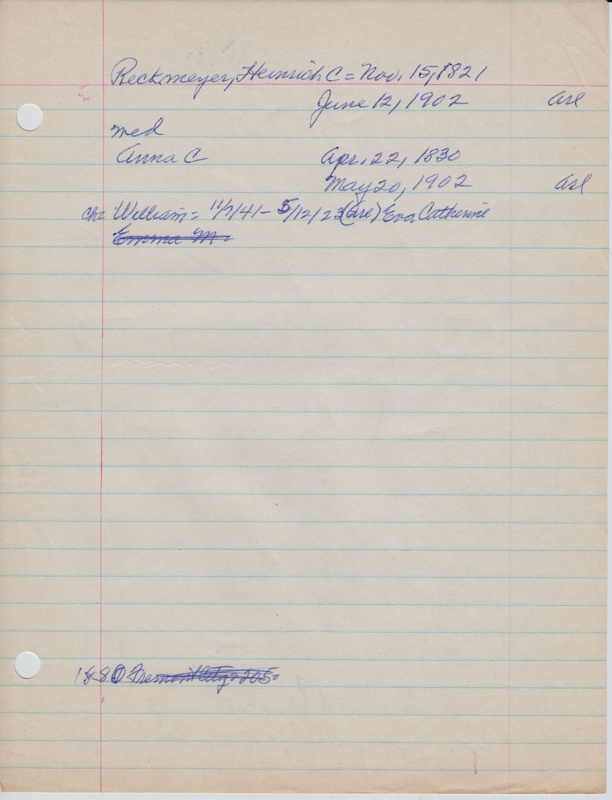 Reckmeyer, Heinrich C = Nov. 15, 1821
June 12, 1902 Arl
med
Anna C Apr. 22, 1830
May 20, 1902 Arl
ch= William = 11/7/41 - 5/12/23 (Arl) Eva Catherine
Emma M =
1880 Fremont City = 205 =